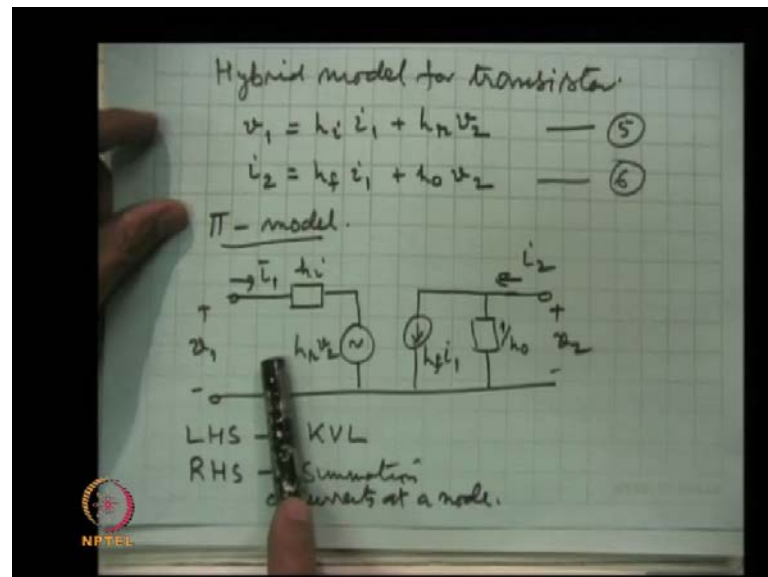 Hybrid model for transistor.
v₁ = hᵢ i₁ + hᵣ v₂ — ⑤
i₂ = h_f i₁ + h₀ v₂ — ⑥
π - model.
i₁ hᵢ i₂
+ +
v₁ hᵣv₂ ~ h_f i₁ 1/h₀ v₂
- -
LHS - KVL
RHS - Summation
currents at a node.
NPTEL